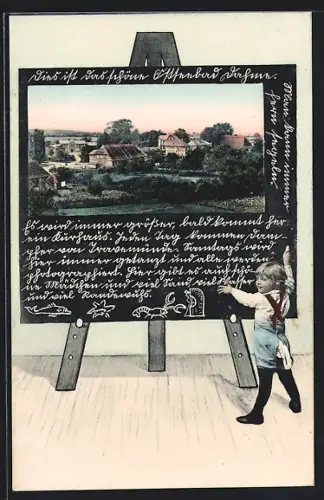 Dies ist das schöne Ostseebad Dahme.
Man kann immer
segeln.
Es wird immer größer, bald kommt her
ein Kurhaus. Jeden Tag kommen Dam-
pfer von Travemünde. Sonntags wird
hier immer getanzt und alle werden
photographiert. Hier gibt es auch schö-
ne Mädchen und viel Sand, viel Wasser
und viel Randewuhs.